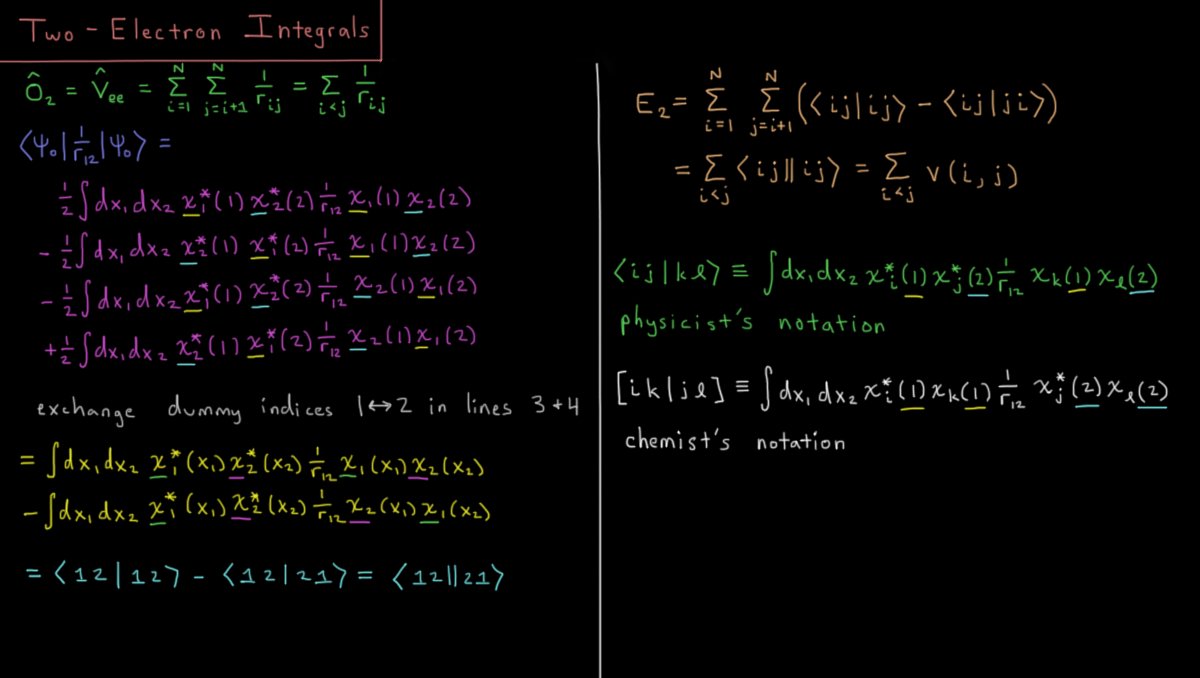 Two-Electron Integrals
Ô₂ = V̂ₑₑ = Σᵢ₌₁ᴺ Σⱼ₌ᵢ₊₁ᴺ 1/rᵢⱼ = Σᵢ<ⱼ 1/rᵢⱼ
⟨Ψ₀|1/r₁₂|Ψ₀⟩ =
1/2 ∫dx₁dx₂ χ₁*(1) χ₂*(2) 1/r₁₂ χ₁(1) χ₂(2)
- 1/2 ∫dx₁dx₂ χ₂*(1) χ₁*(2) 1/r₁₂ χ₁(1) χ₂(2)
- 1/2 ∫dx₁dx₂ χ₁*(1) χ₂*(2) 1/r₁₂ χ₂(1) χ₁(2)
+ 1/2 ∫dx₁dx₂ χ₂*(1) χ₁*(2) 1/r₁₂ χ₂(1) χ₁(2)
exchange dummy indices 1↔2 in lines 3+4
= ∫dx₁dx₂ χ₁*(x₁) χ₂*(x₂) 1/r₁₂ χ₁(x₁) χ₂(x₂)
- ∫dx₁dx₂ χ₁*(x₁) χ₂*(x₂) 1/r₁₂ χ₂(x₁) χ₁(x₂)
= ⟨12|12⟩ - ⟨12|21⟩ = ⟨12||21⟩
E₂ = Σᵢ₌₁ᴺ Σⱼ₌ᵢ₊₁ᴺ (⟨ij|ij⟩ - ⟨ij|ji⟩)
= Σᵢ<ⱼ ⟨ij||ij⟩ = Σᵢ<ⱼ v(i,j)
⟨ij|kl⟩ ≡ ∫dx₁dx₂ χᵢ*(1) χⱼ*(2) 1/r₁₂ χₖ(1) χₗ(2)
physicist's notation
[ik|jl] ≡ ∫dx₁dx₂ χᵢ*(1) χₖ(1) 1/r₁₂ χⱼ*(2) χₗ(2)
chemist's notation